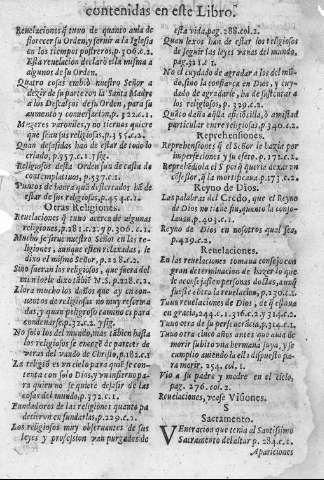 contenidas en este Libro.
Reuelaciones q̃ tuuo de quanto auia de
florecer su Orden, y seruir a la Iglesia
en los tiempos postreros, p.306.c.2.
Esta reuelacion declarò ella misma a
algunos de su Orden.
Quatro cosas embiò nuestro Señor a
dezir de su parte con la Santa Madre
a los Descalços de su Orden, para su
aumento y conseruacion, p.322.c.1.
Mayores varoniles, y no tiernas quiere
que sean sus religiosas, p.355.c.2.
Quan desasidas han de estar de todo lo
criado, p.357.c.1.
Religiosos desta Orden son de casta de
contemplatiuos, p.537.c.1.
Puntos de honra quã desterrados hã de
estar de los religiosos,
Otras Religiones.
Reuelaciones q̃ tuuo acerca de algunas
religiones, p.281.c.2. y p.306.c.1.
Mucho se sirue nuestro Señor en las re-
ligiones, aunque esten relaxadas, se lo
dixo el mismo Señor, p.228.c.2.
Sino fueran los religiosos, que fuera del
mundo le dixo tãbiẽ N.S. p.228.c.1.
Llora mucho los daños que ay en con-
uentos de religiosas no muy reforma-
das, y quan peligroso camino es para
condenarse,
No solo los del mundo, mas tãbien hasta
los religiosos se encogẽ de parecer de
veras del vando de Christo, p.182.c.1
La religiõ es vn cielo para quiẽ se con-
tenta con solo Dios, y vn infierno pa-
ra quien no se quiete dexar de las
cosas del mundo, p.372.c.1.
Fundadores de las religiones quanto pa
decieron en fundarlas, p.229.c.2.
Los religiosos muy obseruantes de sus
leyes y profession van purgados de
esta vida, pag.288.col.2.
Quan lexos han de estar los religiosos
de seguir las leyes vanas del mundo,
No el cuydado de agradar a los del mũ-
do, sino la confiança en Dios, y cuy-
dado de agradarle, ha de sustentar a
los religiosos, p.329.c.2.
Quãto daña aũ esta aficiõcilla, ò amistad
particular entre religiosas, p.340.c.2.
Reprehensiones.
Reprehensiones q̃ el Señor le hazia por
imperfeciones y su efeto. p.172.c.2.
Reprehẽdiola el S. por q̃ queria dexar vn
cõfessor, q̃ la mortificaua, p.173.c.2.
Reyno de Dios.
Las palabras del Credo, que el Reyno
de Dios no tiene fin, quanto la conso-
lauan, p.403.c.1.
Reyno de Dios en nosotros qual sea
p.429.c.2.
Reuelaciones.
En las reuelaciones tomaua consejo con
gran determinacion de hazer lo que
le aconsejassen personas doctas, aunq̃
fuesse cõtra la reuelacion, p.230.c.1.
Tuuo reuelaciones de Dios, de q̃ estaua
en gracia, 244.c.1. 316.c.2. y 314.c.2.
Tuuo otra de su perseuerãcia, p.314.c.2.
Tuuo otra cinco años antes que auia de
morir subito vna hermana suya, y lo
cumpliò auiendo la ella dispuesto pa-
ra morir, 254. col.1.
Vio a su padre y madre en el cielo,
pag. 276. col.2.
Reuelaciones, vease Visiones.
S
Sacramento.
VEneracion que tenia al Santissimo
Sacramento del altar p.284.c.2.
Apariciones